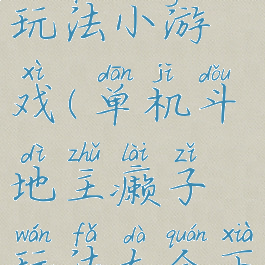 玩法小游
xì dān jī dòu
戏(单机斗
dì zhǔ lài zǐ
地主癞子
wán fǎ dà quán xià
玩法大全下